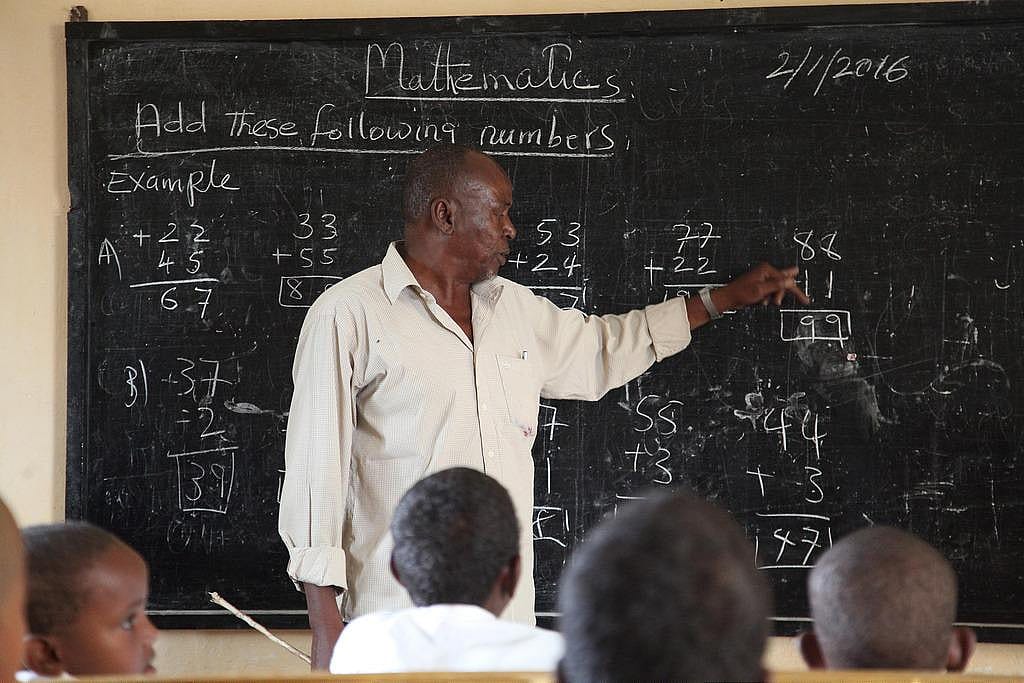 Mathematics. 2/1/2016
Add These following numbers.
Example
A) +22 33 53 77 88
45 +55 +24 +22 11
67 8 7 99
B) 37 7 55 44
2 1 +3 + 3
39 47